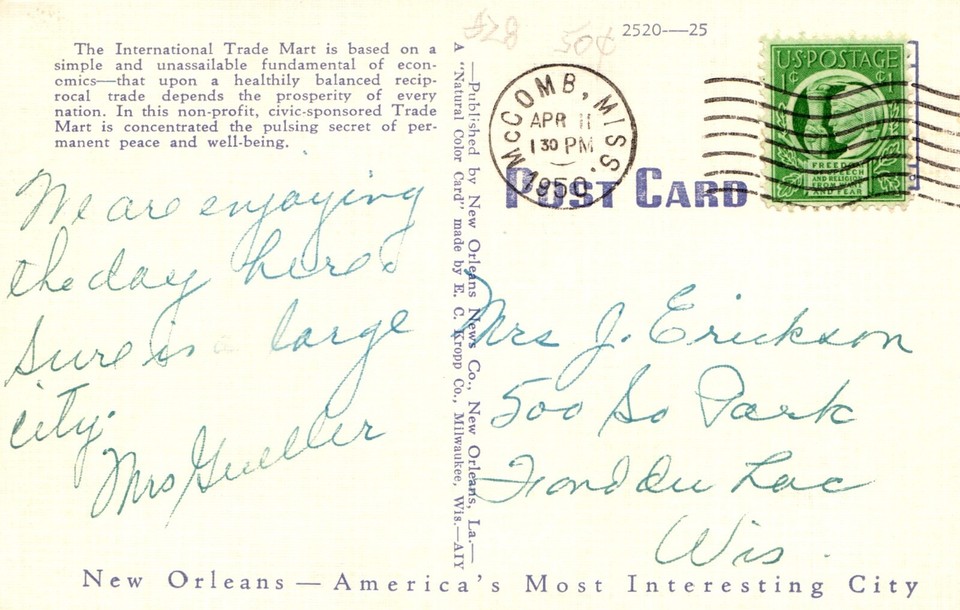 The International Trade Mart is based on a
simple and unassailable fundamental of econ-
omics—that upon a healthily balanced recip-
rocal trade depends the prosperity of every
nation. In this non-profit, civic-sponsored Trade
Mart is concentrated the pulsing secret of per-
manent peace and well-being.
We are enjoying
the day here.
Sure is a large
city.
Mrs
A "Natural Color Card" made by E. C. Kropp Co., Milwaukee, Wis.—A1Y
—Published by New Orleans News Co., New Orleans, La.—
50¢
2520—25
McCOMB, MISS.
APR 11
1 30 PM
1950
U.S. POSTAGE
1¢ ¢1
FREEDOM
OF SPEECH
AND RELIGION
FROM WANT
AND FEAR
POST CARD
Mrs J. Erickson
500 So Park
Fond du Lac
Wis.
New Orleans — America's Most Interesting City